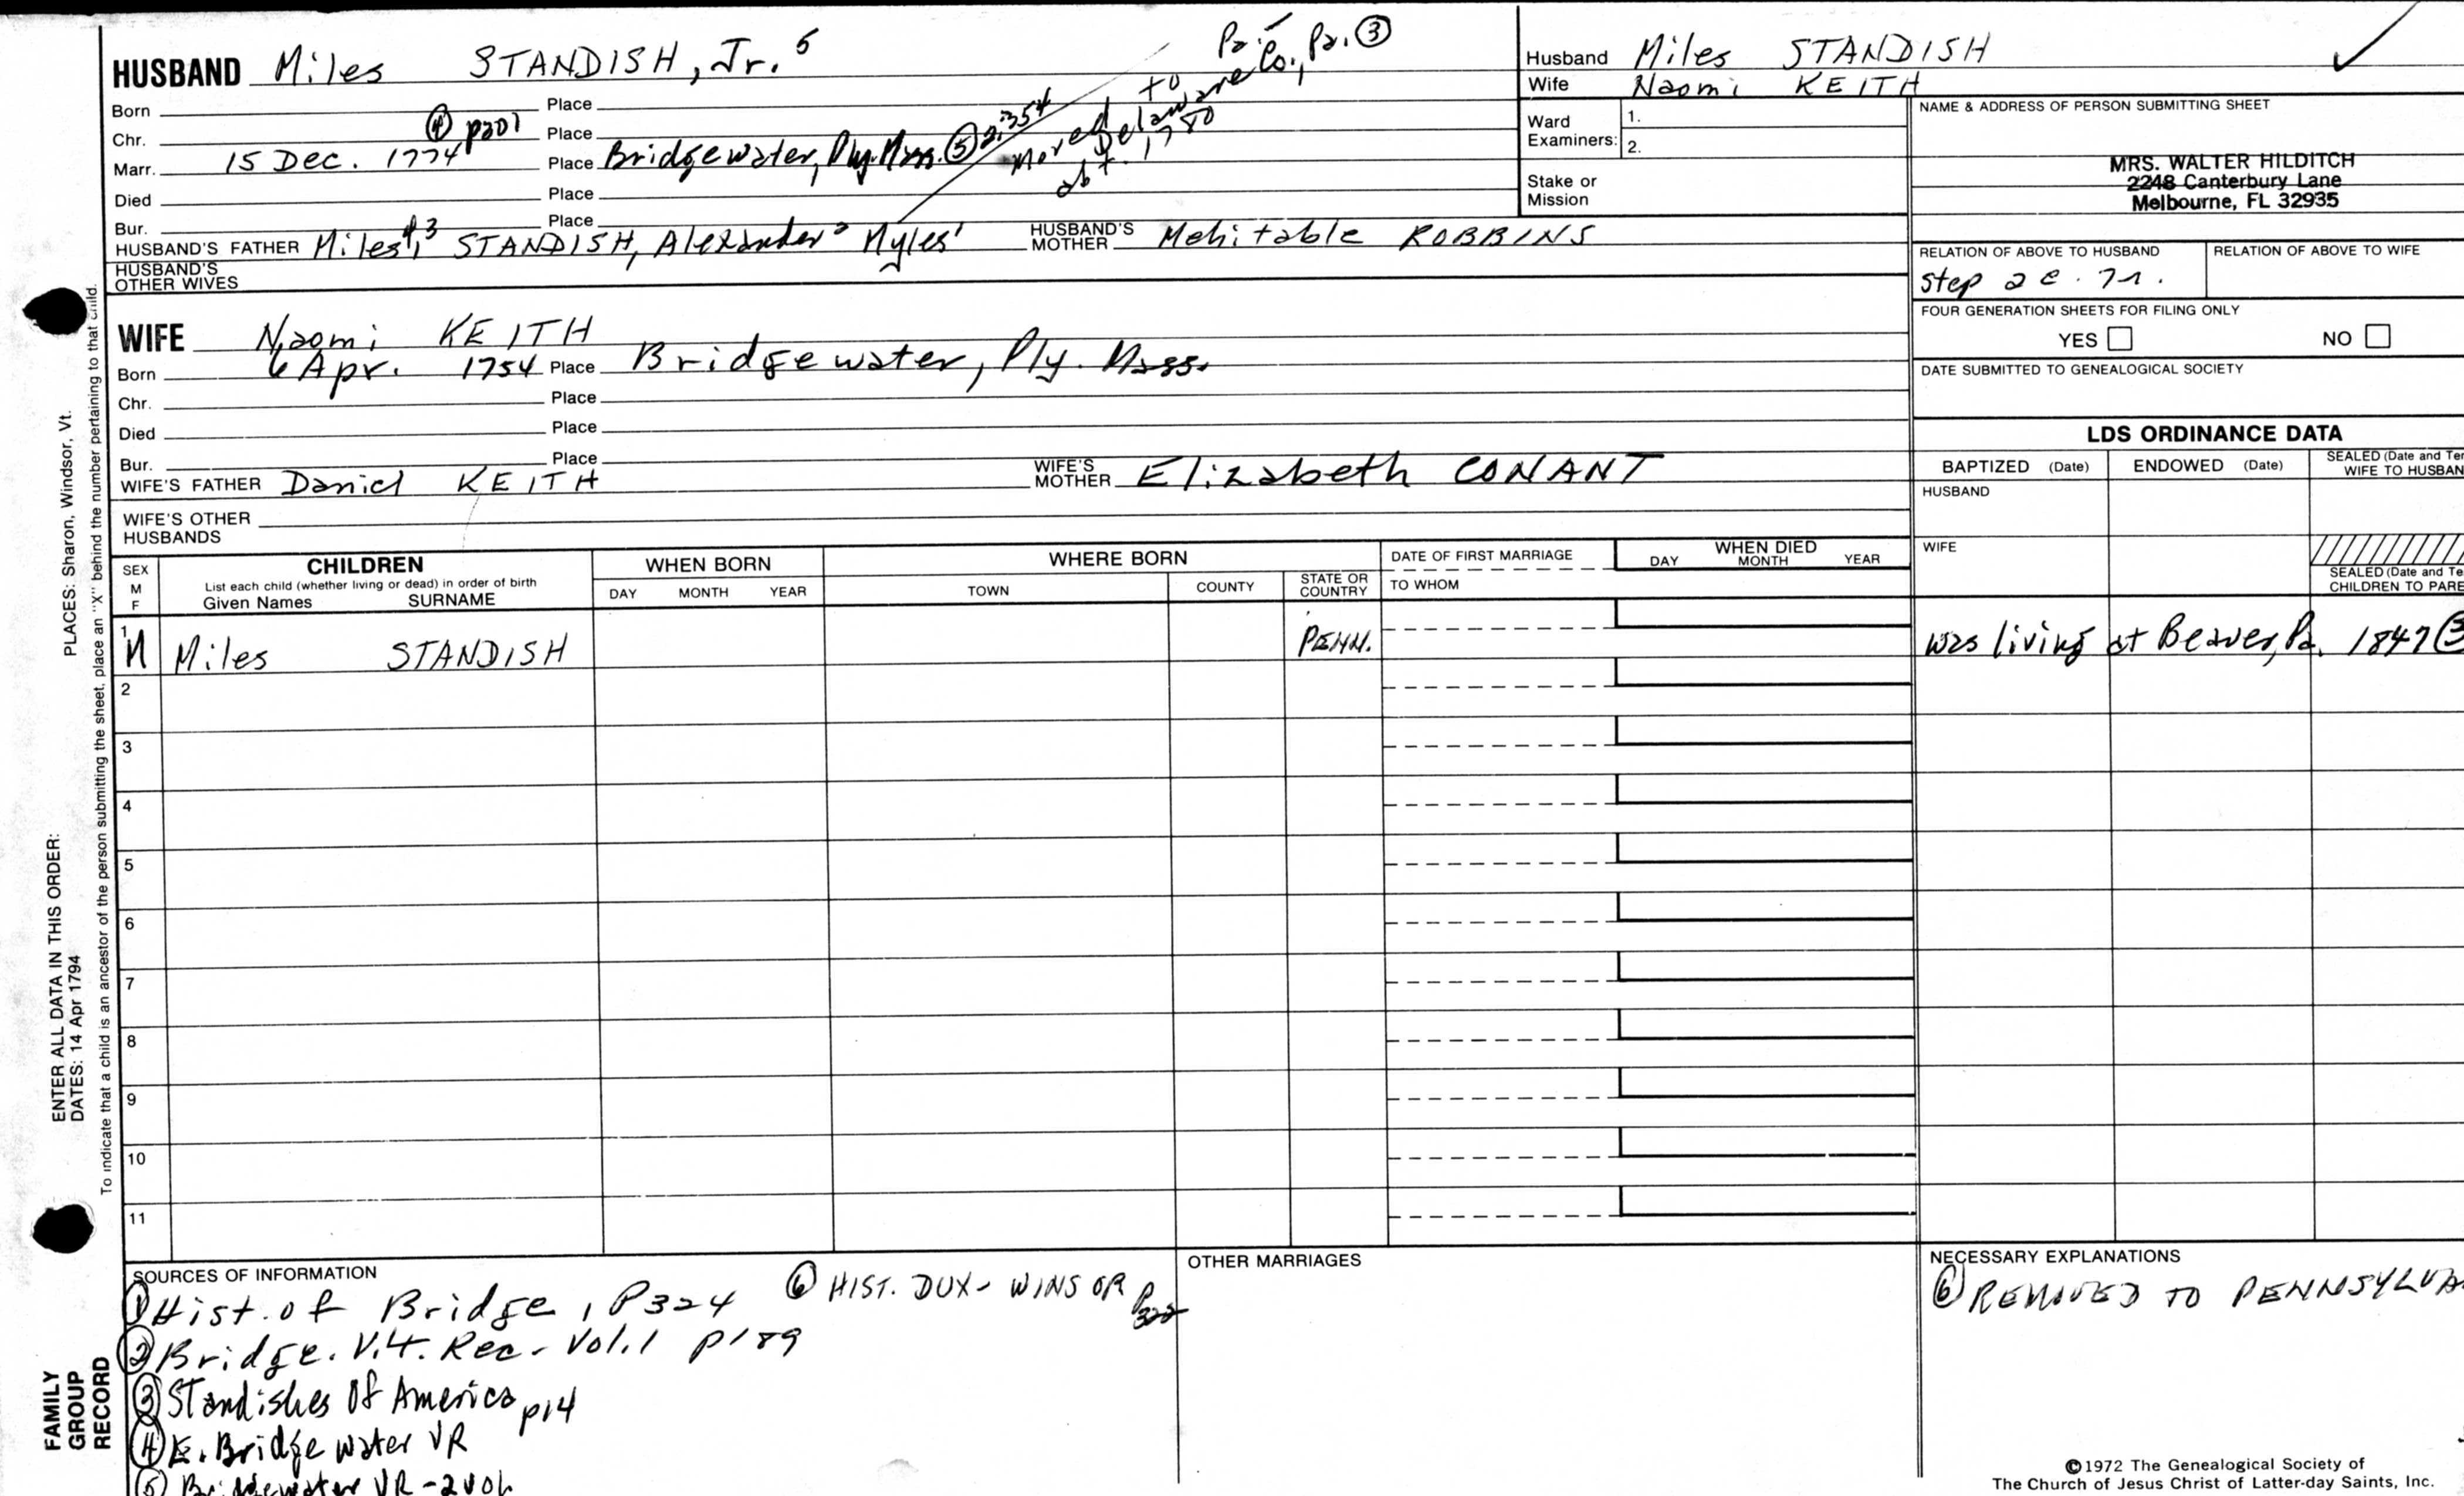 HUSBAND Miles STANDISH, Jr. 5
Pa. Co., Pa. ③
moved to Delaware
abt. 1780
Born Place
Chr. ④ p201 Place
Marr. 15 Dec. 1774 Place Bridgewater, Ply. Mass. ⑤ 2:354
Died Place
Bur. Place
HUSBAND'S FATHER Miles 4,3 STANDISH, Alexander 2 Myles 1 HUSBAND'S MOTHER Mehitable ROBBINS
HUSBAND'S OTHER WIVES
WIFE Naomi KEITH
Born 6 Apr. 1754 Place Bridgewater, Ply. Mass.
Chr. Place
Died Place
Bur. Place
WIFE'S FATHER Daniel KEITH WIFE'S MOTHER Elizabeth CONANT
WIFE'S OTHER HUSBANDS
Husband Miles STANDISH
Wife Naomi KEITH
Ward Examiners: 1.
2.
Stake or Mission
NAME & ADDRESS OF PERSON SUBMITTING SHEET
MRS. WALTER HILDITCH
2248 Canterbury Lane
Melbourne, FL 32935
RELATION OF ABOVE TO HUSBAND RELATION OF ABOVE TO WIFE
Step
FOUR GENERATION SHEETS FOR FILING ONLY
YES NO
DATE SUBMITTED TO GENEALOGICAL SOCIETY
LDS ORDINANCE DATA
BAPTIZED (Date) ENDOWED (Date) SEALED (Date and Te
WIFE TO HUSBAN
HUSBAND
WIFE
SEALED (Date and Te
CHILDREN TO PARE
SEX M F
CHILDREN
List each child (whether living or dead) in order of birth
Given Names SURNAME
WHEN BORN
DAY MONTH YEAR
WHERE BORN
TOWN COUNTY STATE OR COUNTRY
DATE OF FIRST MARRIAGE
TO WHOM
WHEN DIED
DAY MONTH YEAR
1 M Miles STANDISH PENN. was living at Beaver, Pa. 1847 ③
2
3
4
5
6
7
8
9
10
11
SOURCES OF INFORMATION
① Hist. of Bridge, P324
② Bridge. Vit. Rec. Vol. 1 p189
③ Standishes Of America p14
④ E. Bridgewater VR
⑤ Bridgewater VR - 2
⑥ HIST. DUX - WINSOR P322
OTHER MARRIAGES
NECESSARY EXPLANATIONS
⑥ REMOVED TO PENNSYLVA
©1972 The Genealogical Society of
The Church of Jesus Christ of Latter-day Saints, Inc.
PLACES: Sharon, Windsor, Vt.
ENTER ALL DATA IN THIS ORDER:
DATES: 14 Apr 1794
To indicate that a child is an ancestor of the person submitting the sheet, place an "X" behind the number pertaining to that child.
FAMILY
GROUP
RECORD